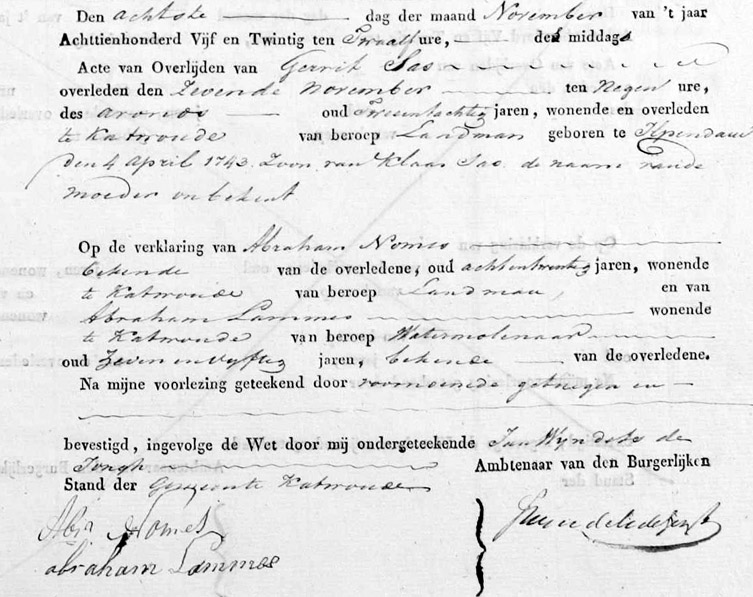 Den achtste dag der maand November van 't jaar
Achttienhonderd Vijf en Twintig ten Twaalf ure, des middags
Acte van Overlijden van Gerrit Sas
overleden den Zevende November ten Negen ure,
des avonds oud Tweentachtig jaren, wonende en overleden
te Katwoude van beroep Landman geboren te Ilpendam
den 4 April 1743. Zoon van Klaas Sas de naam vande
moeder onbekent
Op de verklaring van Abraham Nomes
bekende van de overledene, oud achtentwintig jaren, wonende
te Katwoude van beroep Landman, en van
Abraham Lammes wonende
te Katwoude van beroep Watermolenaar
oud Zeven en vyftig jaren, bekende van de overledene.
Na mijne voorlezing geteekend door voornoemde getuegen en
bevestigd, ingevolge de Wet door mij ondergeteekende Jan de
Jongh Ambtenaar van den Burgerlijken
Stand der Gemeente Katwoude
Abr Nomes
abraham Lammes